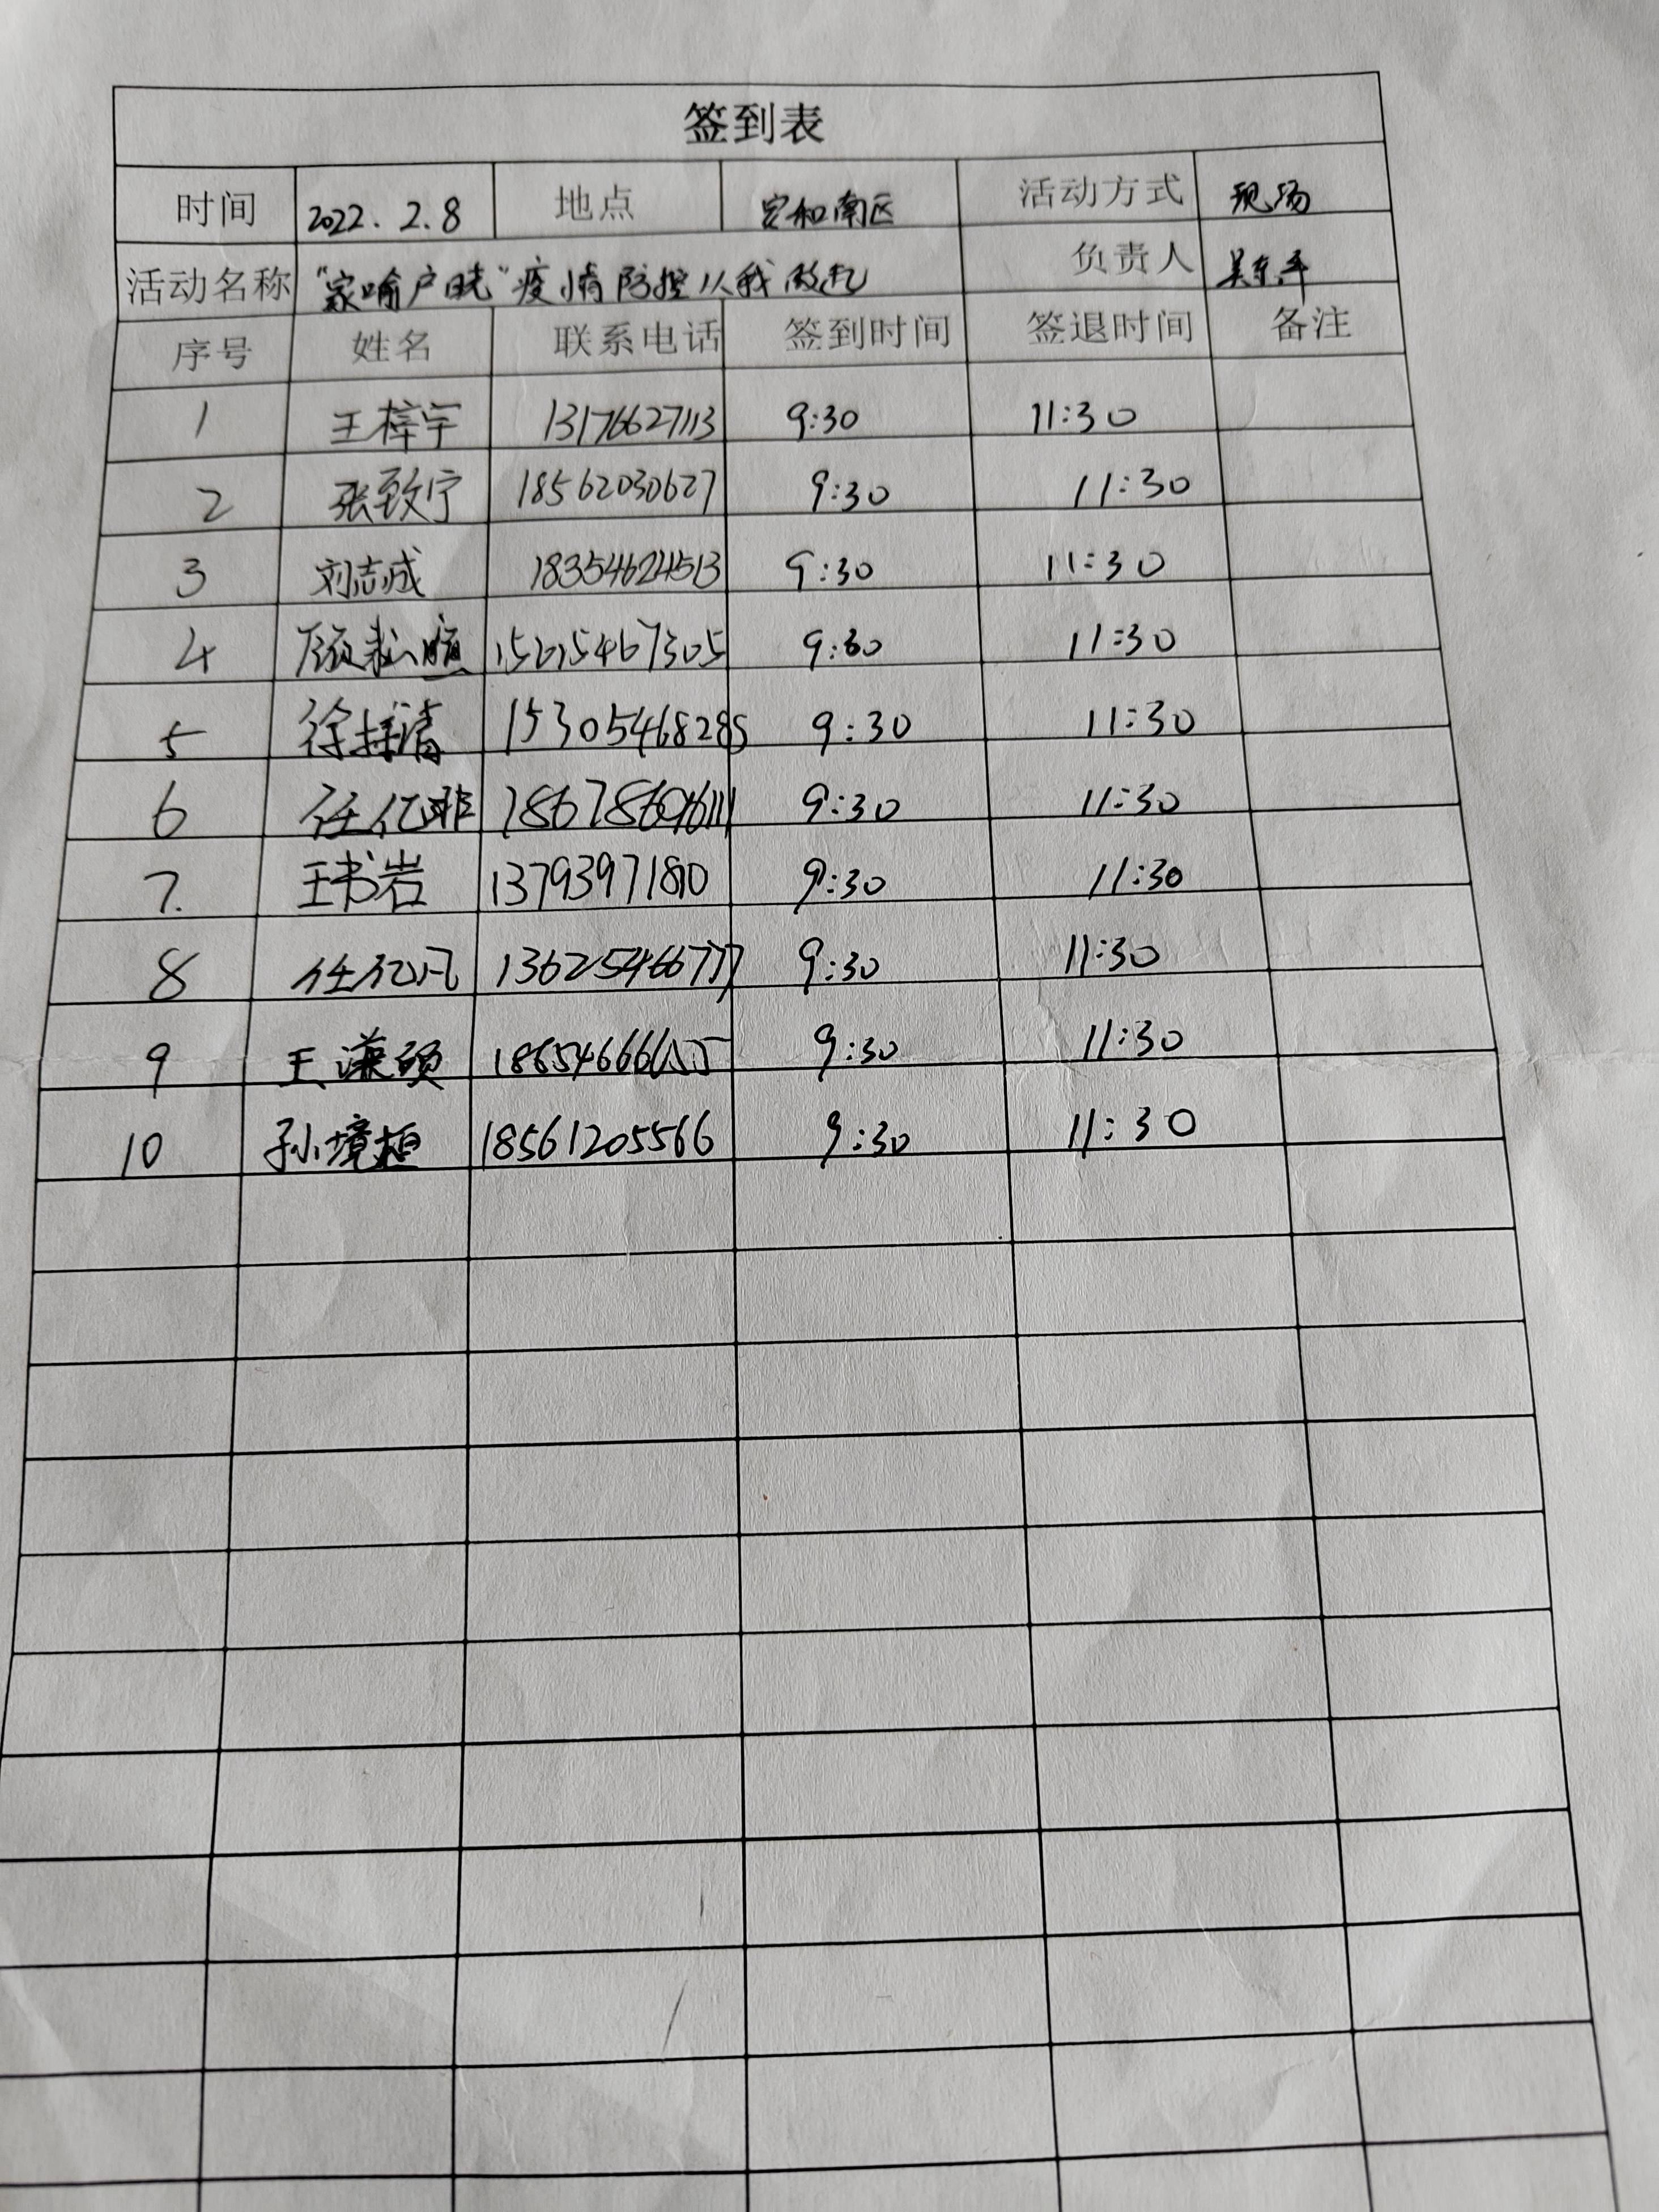 签到表
时间 2022.2.8 地点 安和南区 活动方式 现场
活动名称 "家喻户晓"疫情防控从我做起 负责人 吴东平
序号 姓名 联系电话 签到时间 签退时间 备注
1 王梓宇 13176627113 9:30 11:30
2 张致宁 18562030627 9:30 11:30
3 刘志成 18354624513 9:30 11:30
4 15615467305 9:30 11:30
5 15305468285 9:30 11:30
6 任亿非 9:30 11:30
7. 王书岩 9:30 11:30
8 任亿凡 13625466777 9:30 11:30
9 王谦硕 9:30 11:30
10 孙境垣 18561205566 9:30 11:30